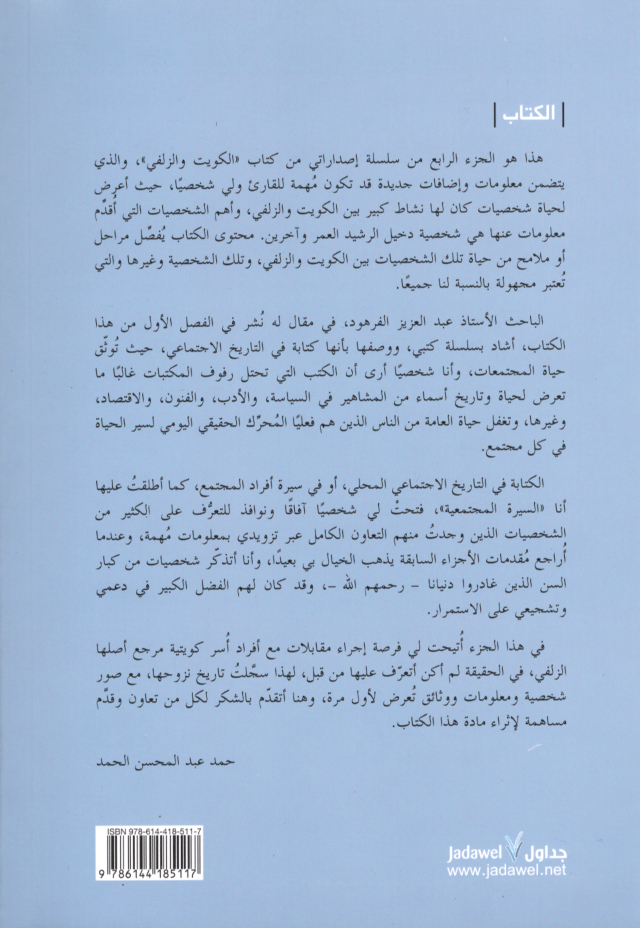 الكتاب
هذا هو الجزء الرابع من سلسلة إصداراتي من كتاب «الكويت والزلفي»، والذي
يتضمن معلومات وإضافات جديدة قد تكون مُهمة للقارئ ولي شخصيًا، حيث أعرض
لحياة شخصيات كان لها نشاط كبير بين الكويت والزلفي، وأهم الشخصيات التي أُقدِّم
معلومات عنها هي شخصية دخيل الرشيد العمر وآخرين. محتوى الكتاب يُفصِّل مراحل
أو ملامح من حياة تلك الشخصيات بين الكويت والزلفي، وتلك الشخصية وغيرها والتي
تُعتبر مجهولة بالنسبة لنا جميعًا.
الباحث الأستاذ عبد العزيز الفرهود، في مقال له نُشر في الفصل الأول من هذا
الكتاب، أشاد بسلسلة كتبي، ووصفها بأنها كتابة في التاريخ الاجتماعي، حيث تُوثِّق
حياة المجتمعات، وأنا شخصيًا أرى أن الكتب التي تحتل رفوف المكتبات غالبًا ما
تعرض لحياة وتاريخ أسماء من المشاهير في السياسة، والأدب، والفنون، والاقتصاد،
وغيرها، وتغفل حياة العامة من الناس الذين هم فعليًا المُحرِّك الحقيقي اليومي لسير الحياة
في كل مجتمع.
الكتابة في التاريخ الاجتماعي المحلي، أو في سيرة أفراد المجتمع، كما أطلقتُ عليها
أنا «السيرة المجتمعية»، فتحتْ لي شخصيًا آفاقًا ونوافذ للتعرُّف على الكثير من
الشخصيات الذين وجدتُ منهم التعاون الكامل عبر تزويدي بمعلومات مُهمة، وعندما
أُراجع مُقدمات الأجزاء السابقة يذهب الخيال بي بعيدًا، وأنا أتذكّر شخصيات من كبار
السن الذين غادروا دنيانا – رحمهم الله –، وقد كان لهم الفضل الكبير في دعمي
وتشجيعي على الاستمرار.
في هذا الجزء أُتيحت لي فرصة إجراء مقابلات مع أفراد أُسر كويتية مرجع أصلها
الزلفي، في الحقيقة لم أكن أتعرّف عليها من قبل، لهذا سجّلتُ تاريخ نزوحها، مع صور
شخصية ومعلومات ووثائق تُعرض لأول مرة، وهنا أتقدّم بالشكر لكل من تعاون وقدَّم
مساهمة لإثراء مادة هذا الكتاب.
حمد عبد المحسن الحمد
ISBN 978-614-418-511-7
9 786144 185117
Jadawel جداول
www.jadawel.net